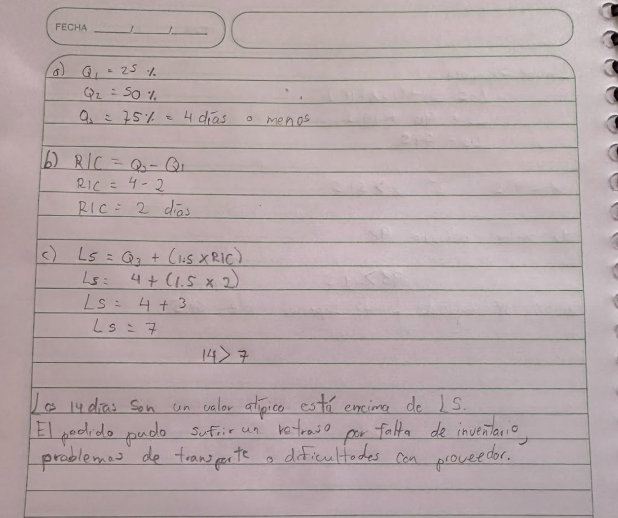 FECHA ___/___/___
a) Q₁ = 25 %
Q₂ = 50 %
Q₃ = 75% = 4 días o menos
b) RIC = Q₃ - Q₁
RIC = 4 - 2
RIC = 2 días
c) LS = Q₃ + (1.5 x RIC)
LS = 4 + (1.5 x 2)
LS = 4 + 3
LS = 7
14 > 7
Los 14 dias son un valor atípico está encima de LS.
El pedido pudo sufrir un retraso por falta de inventario,
problemas de transporte o dificultades con proveedor.